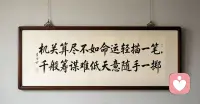 机关算尽不如命运轻描一笔
千般筹谋难低天意随手一掷